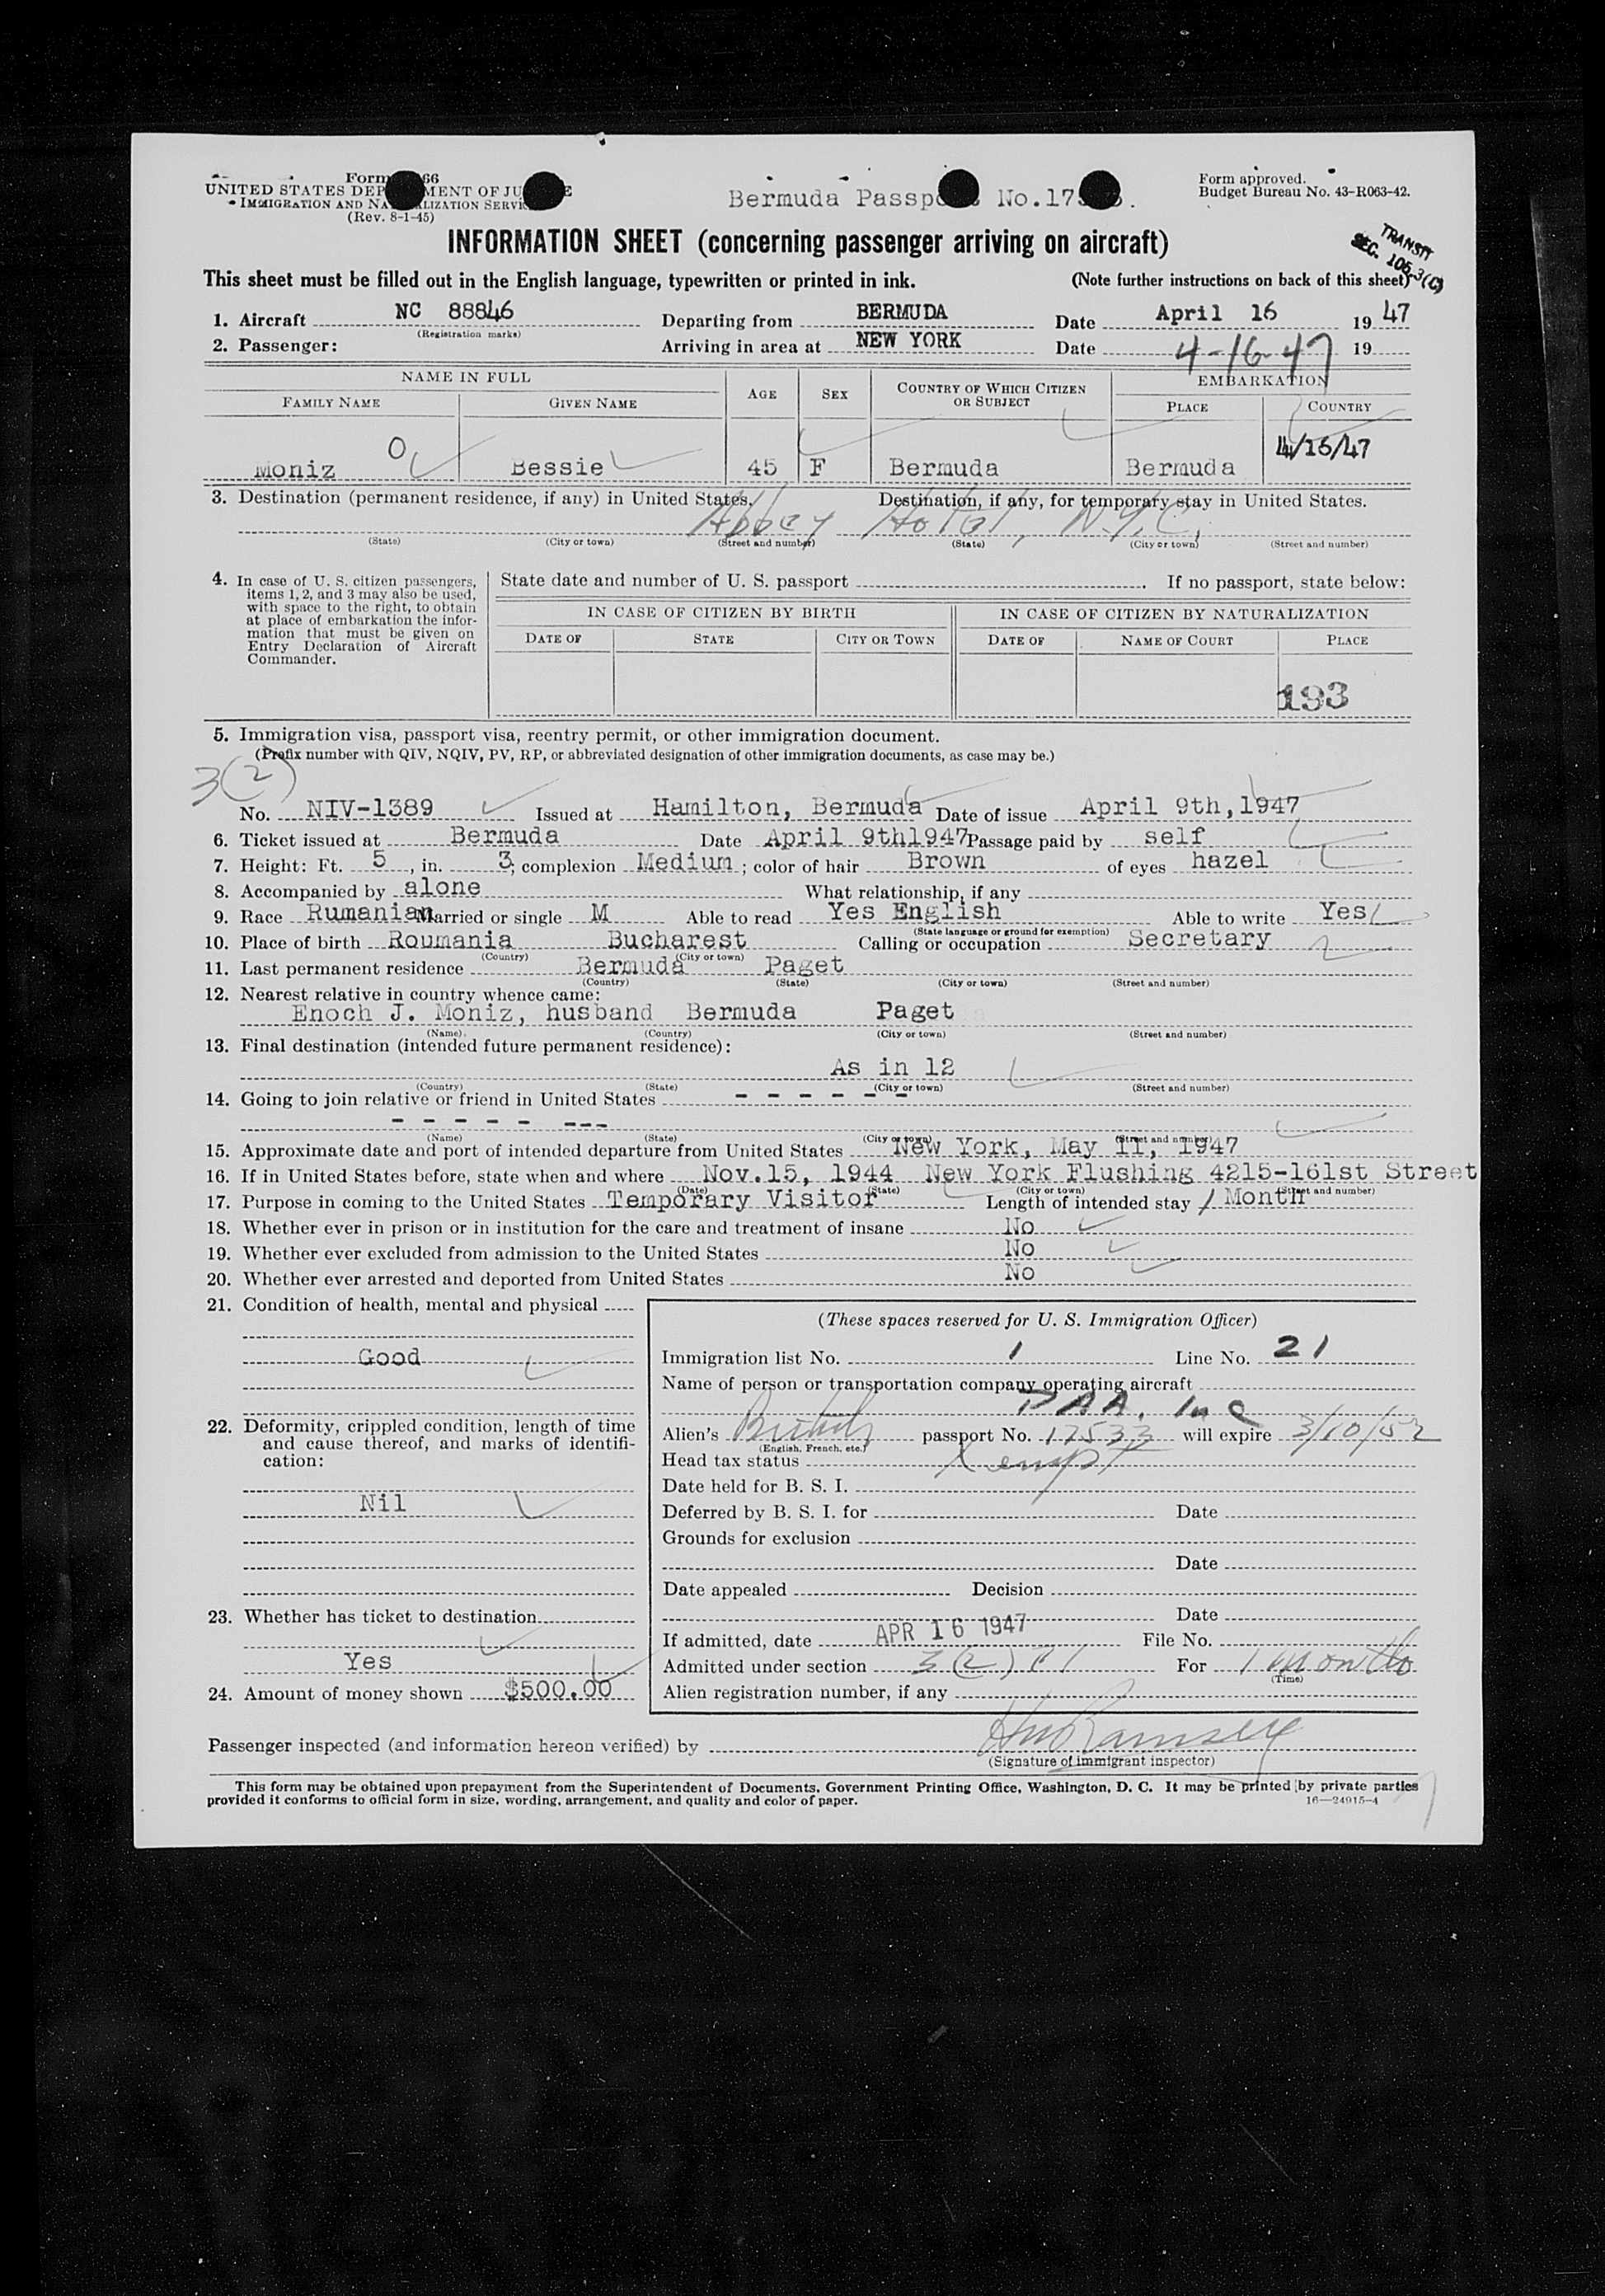 Form 66
UNITED STATES DEP MENT OF JU E
IMMIGRATION AND NA LIZATION SERVI
(Rev. 8-1-45)
Bermuda Passpo No.17
Form approved.
Budget Bureau No. 43-R063-42.
INFORMATION SHEET (concerning passenger arriving on aircraft)
TRANSIT
SEC. 106.3(C)
This sheet must be filled out in the English language, typewritten or printed in ink. (Note further instructions on back of this sheet)
1. Aircraft NC 88846 Departing from BERMUDA Date April 16 19 47
(Registration marks)
2. Passenger: Arriving in area at NEW YORK Date 4-16-47 19
NAME IN FULL AGE SEX COUNTRY OF WHICH CITIZEN OR SUBJECT EMBARKATION
FAMILY NAME GIVEN NAME PLACE COUNTRY
0 4/16/47
Moniz Bessie 45 F Bermuda Bermuda
3. Destination (permanent residence, if any) in United States. Destination, if any, for temporary stay in United States.
Abbey Hotel, N.Y.C.
(State) (City or town) (Street and number) (State) (City or town) (Street and number)
4. In case of U. S. citizen passengers, items 1, 2, and 3 may also be used, with space to the right, to obtain at place of embarkation the information that must be given on Entry Declaration of Aircraft Commander.
State date and number of U. S. passport . If no passport, state below:
IN CASE OF CITIZEN BY BIRTH IN CASE OF CITIZEN BY NATURALIZATION
DATE OF STATE CITY OR TOWN DATE OF NAME OF COURT PLACE
193
5. Immigration visa, passport visa, reentry permit, or other immigration document.
(Prefix number with QIV, NQIV, PV, RP, or abbreviated designation of other immigration documents, as case may be.)
3(2)
No. NIV-1389 Issued at Hamilton, Bermuda Date of issue April 9th, 1947
6. Ticket issued at Bermuda Date April 9th1947 Passage paid by self
7. Height: Ft. 5, in. 3; complexion Medium; color of hair Brown of eyes hazel
8. Accompanied by alone What relationship, if any
9. Race Rumanian Married or single M Able to read Yes English Able to write Yes
(State language or ground for exemption)
10. Place of birth Roumania Bucharest Calling or occupation Secretary
(Country) (City or town)
11. Last permanent residence Bermuda Paget
(Country) (State) (City or town) (Street and number)
12. Nearest relative in country whence came:
Enoch J. Moniz, husband Bermuda Paget
(Name) (Country) (City or town) (Street and number)
13. Final destination (intended future permanent residence):
As in 12
(Country) (State) (City or town) (Street and number)
14. Going to join relative or friend in United States - - - - - -
- - - - - ---
(Name) (State) (City or town) (Street and number)
15. Approximate date and port of intended departure from United States New York, May 11, 1947
16. If in United States before, state when and where Nov.15, 1944 New York Flushing 4215-161st Street
(Date) (State) (City or town) (Street and number)
17. Purpose in coming to the United States Temporary Visitor Length of intended stay 1 Month
18. Whether ever in prison or in institution for the care and treatment of insane No
19. Whether ever excluded from admission to the United States No
20. Whether ever arrested and deported from United States No
21. Condition of health, mental and physical
Good
22. Deformity, crippled condition, length of time and cause thereof, and marks of identification:
Nil
23. Whether has ticket to destination
Yes
24. Amount of money shown $500.00
(These spaces reserved for U. S. Immigration Officer)
Immigration list No. 1 Line No. 21
Name of person or transportation company operating aircraft
PAA. Inc
Alien's British passport No. 17533 will expire 3/10/52
(English, French, etc.)
Head tax status Xempt
Date held for B. S. I.
Deferred by B. S. I. for Date
Grounds for exclusion
Date
Date appealed Decision
Date
If admitted, date APR 16 1947 File No.
Admitted under section 3(2) For 1 month
(Time)
Alien registration number, if any
Passenger inspected (and information hereon verified) by Ramsey
(Signature of immigrant inspector)
This form may be obtained upon prepayment from the Superintendent of Documents, Government Printing Office, Washington, D. C. It may be printed by private parties
provided it conforms to official form in size, wording, arrangement, and quality and color of paper. 16—24915-4